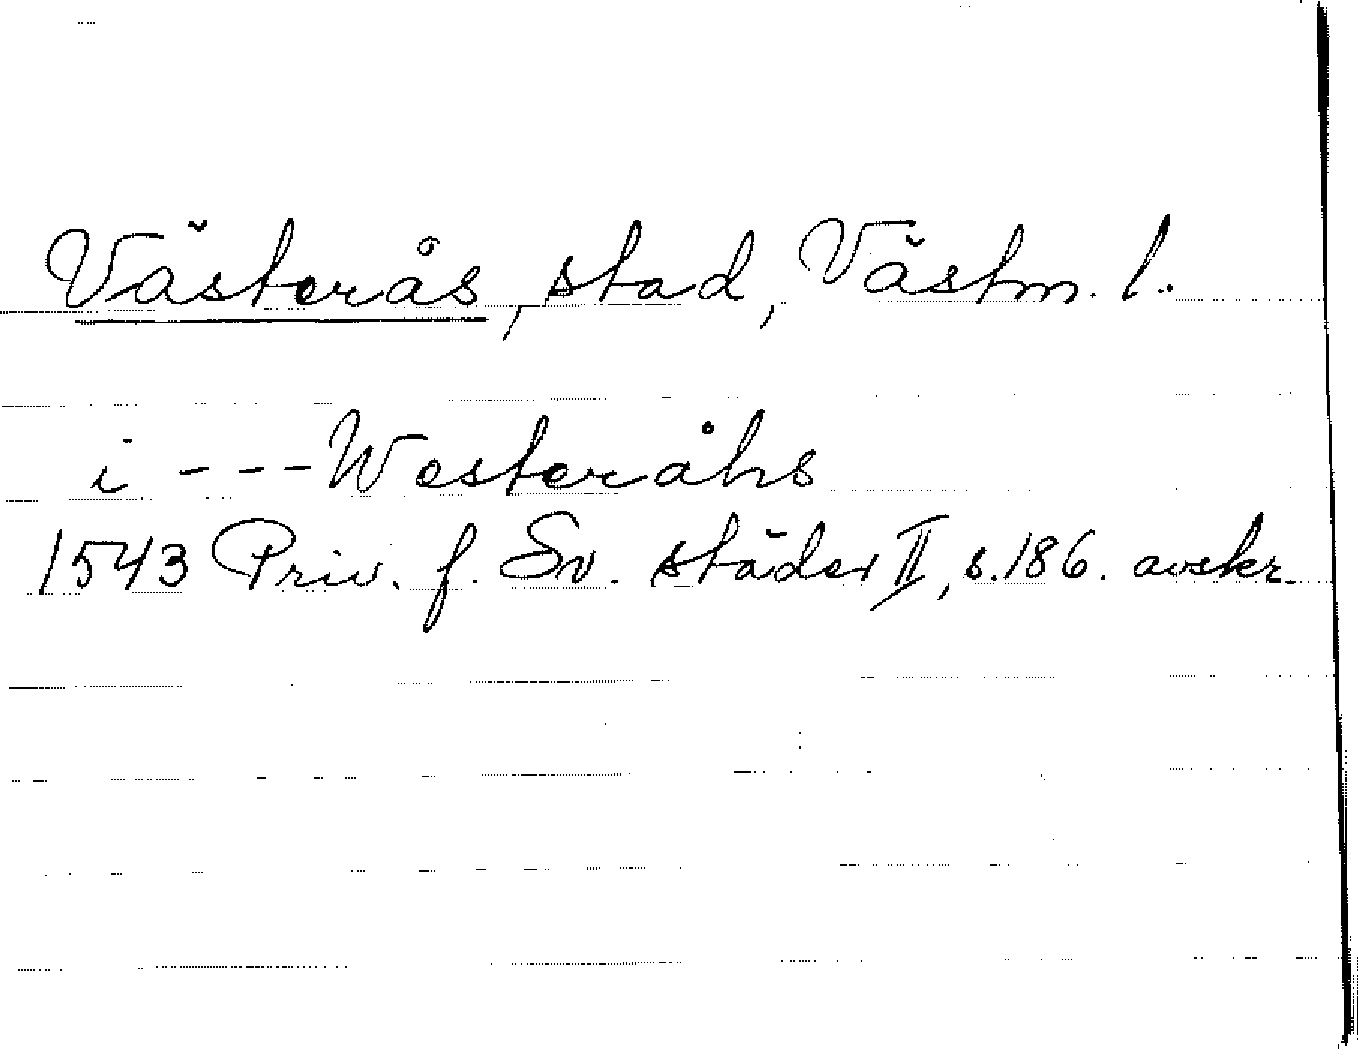 Västerås, stad, Västm. l.
i - - - Westeråhs
1543 Priv. f. Sv. städer II, s. 186. avskr.